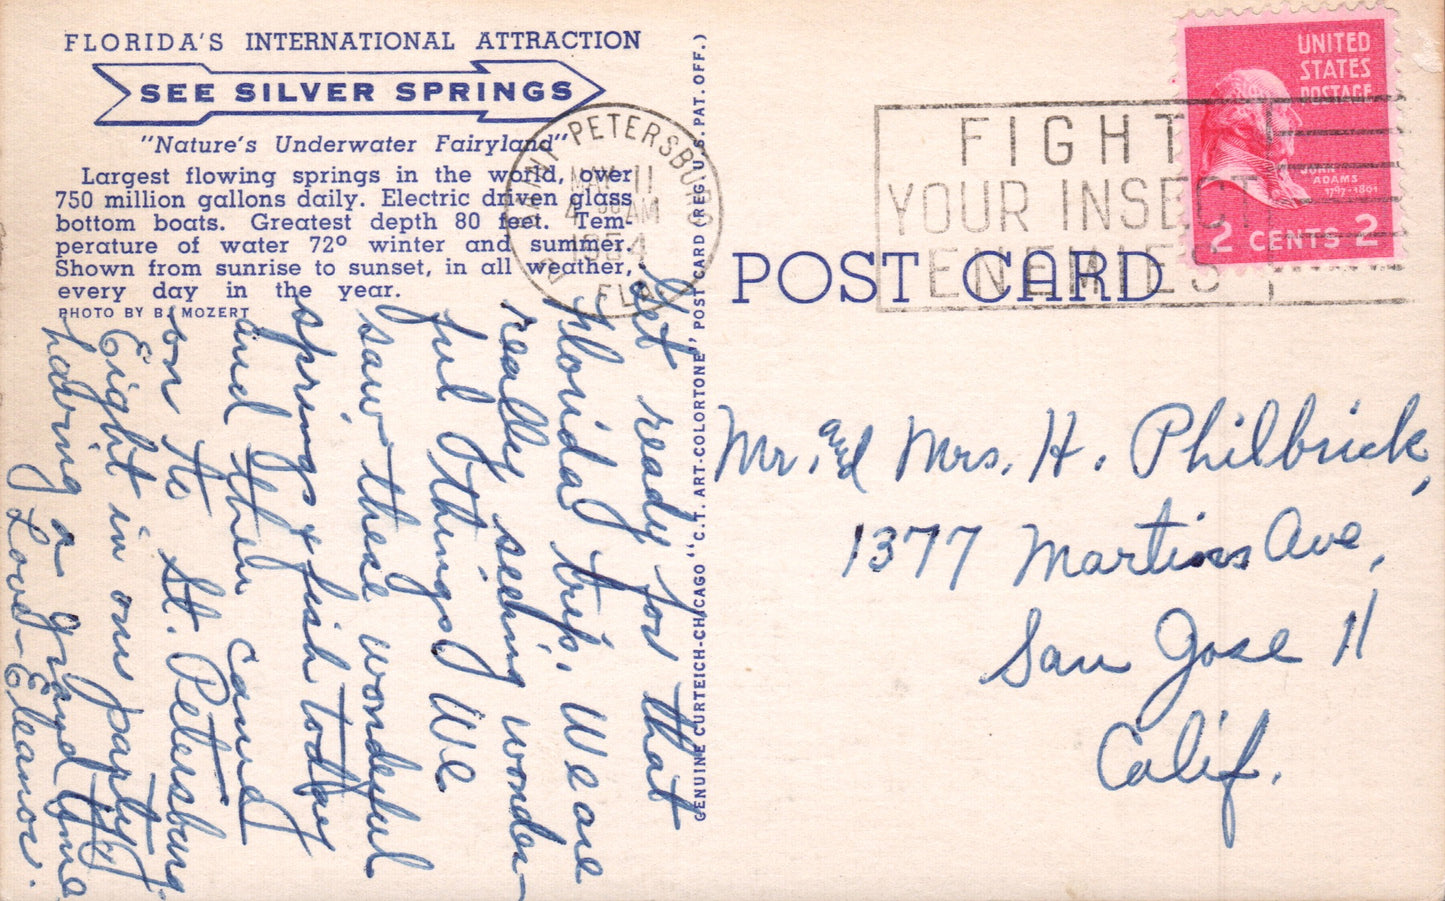 FLORIDA'S INTERNATIONAL ATTRACTION
SEE SILVER SPRINGS
"Nature's Underwater Fairyland"
Largest flowing springs in the world, over
750 million gallons daily. Electric driven glass
bottom boats. Greatest depth 80 feet. Tem-
perature of water 72º winter and summer.
Shown from sunrise to sunset, in all weather,
every day in the year.
PHOTO BY B. MOZERT
Get ready for that
Florida trip. We are
really seeing wonder-
ful things. We
saw these wonderful
springs & fish today
and then came
on to St. Petersburg.
Eight in our party
having a grand time
Love - Eleanor.
GENUINE CURTEICH-CHICAGO "C.T. ART-COLORTONE" POST CARD (REG. U.S. PAT. OFF.)
ST PETERSBURG
MAY 11
4 30 AM
1954
FLA
FIGHT
YOUR INSECT
ENEMIES
UNITED
STATES
POSTAGE
JOHN
ADAMS
1797-1801
2 CENTS 2
POST CARD
Mr. and Mrs. H. Philbrick,
1377 Martins Ave,
San Jose 11
Calif.